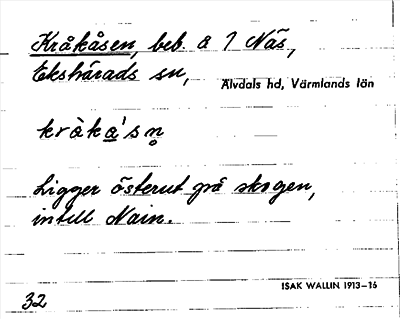 Kråkåsen, beb. å 7 Näs,
Ekshärads sn,
Älvdals hd, Värmlands län
kràka's n̥
Ligger österut på skogen,
intill Nain.
ISAK WALLIN 1913–16
32